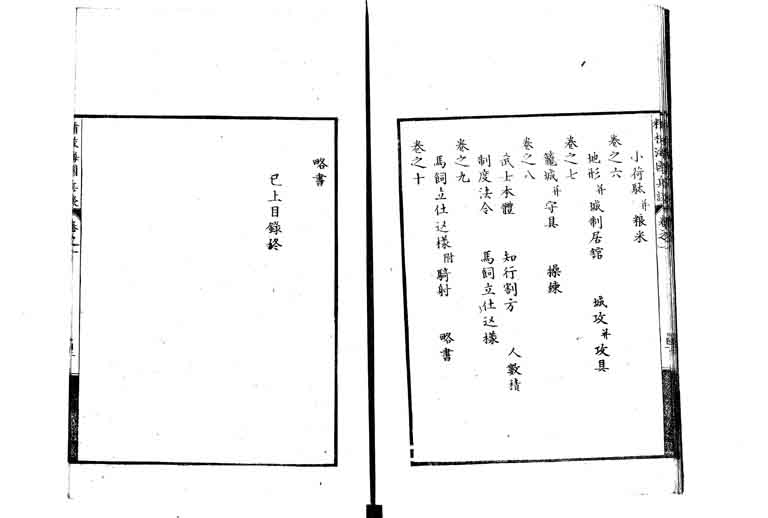 小荷駄并粮米
卷之六
地形并城制居館 城攻并攻具
卷之七
籠城并守具 操練
卷之八
武士本體 知行割方 人數積
制度法令 馬飼立仕込様
卷之九
馬飼立仕込様附騎射 略書
卷之十
略書
已上目錄終